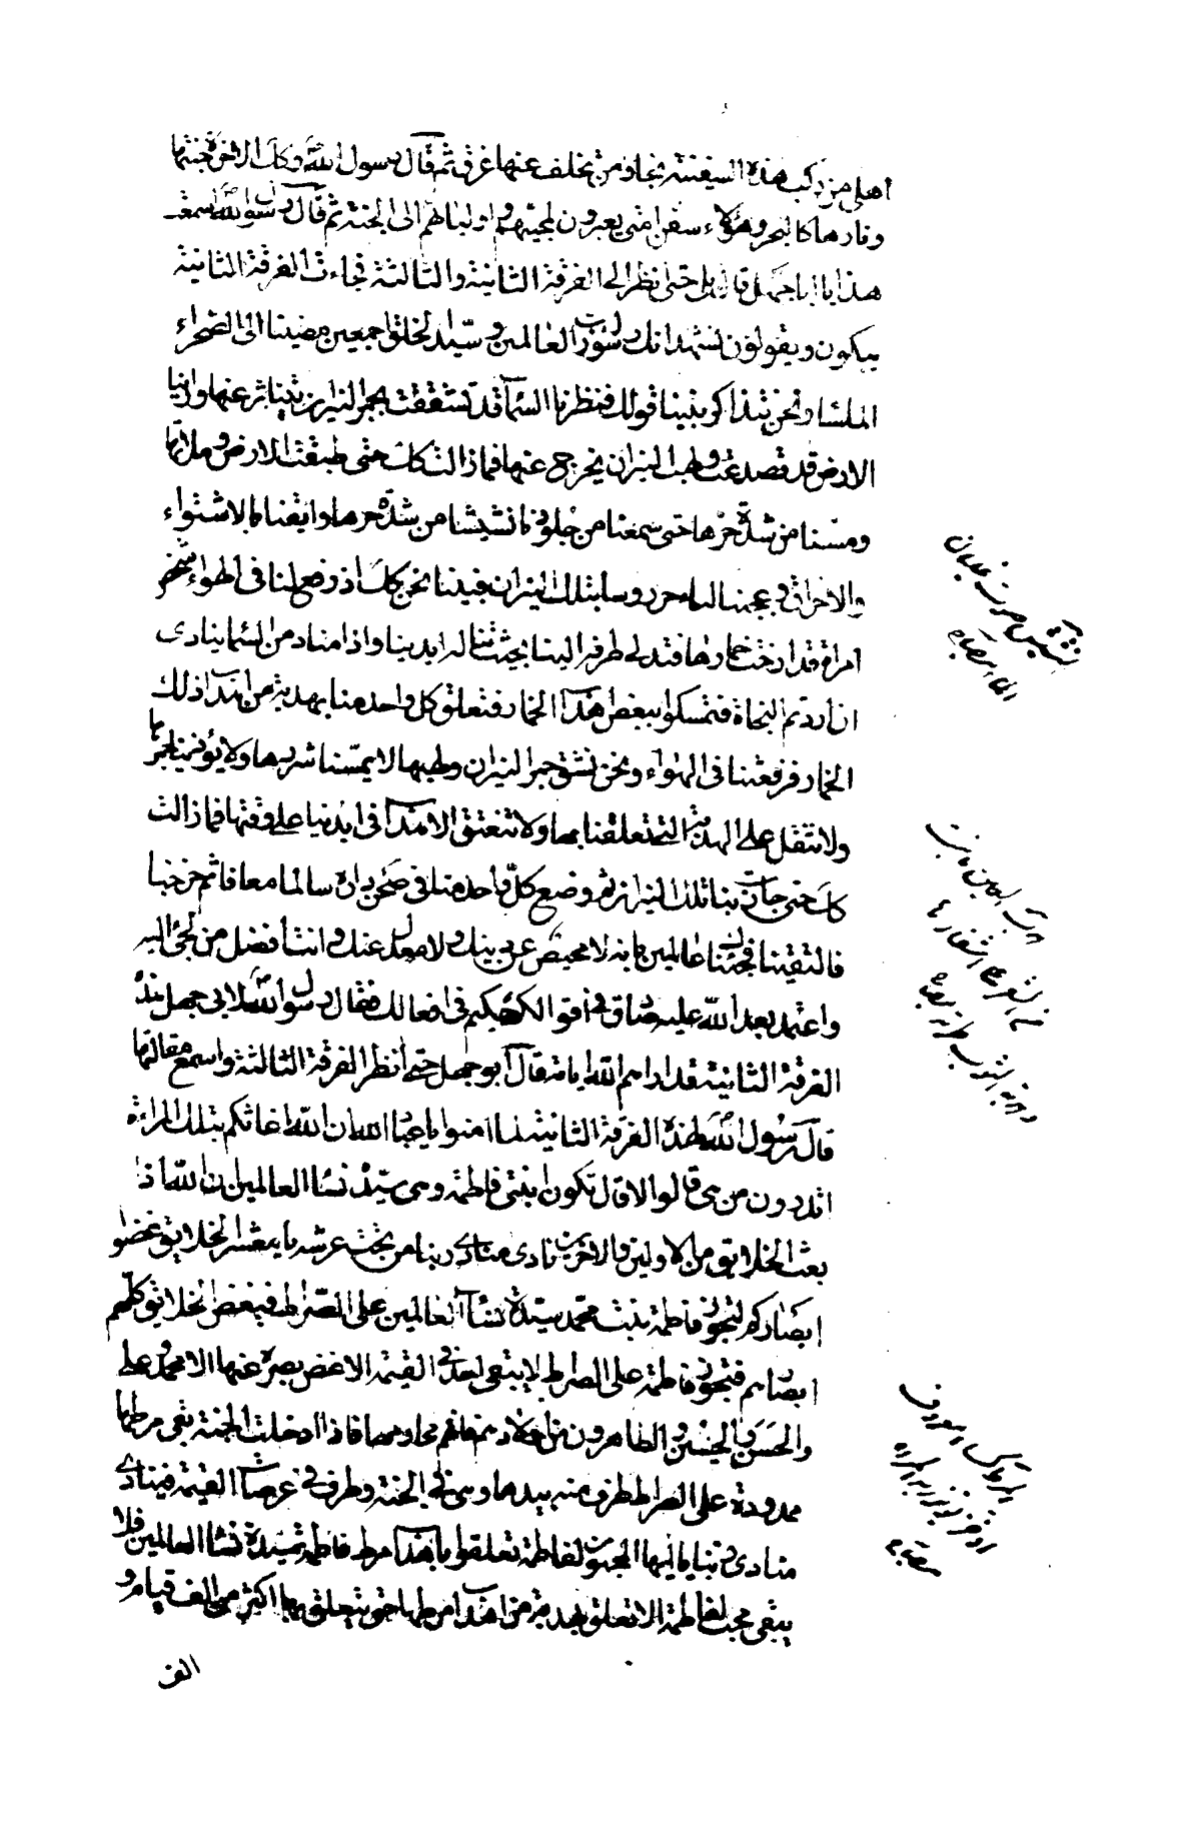 اهلى من ركب هذه السفينة نجا ومن تخلف عنها غرق ثم قال رسول الله وكان الاخرة جنتها
ونارها كالبحر وهؤلاء سفن امتى يعبرون لمحبيهم واوليائهم الى الجنة ثم قال رسول الله اسمعت
هذا يا ابا جهل قال بلى حتى انظر الى الفرقة الثانية والثالثة فجاءت الفرقة الثانية
يبكون ويقولون نشهد انك رسول رب العالمين وسيد الخلق اجمعين مضينا الى الصحراء
الملساء ونحن نتذاكر بيننا قولك فنظرنا السماء قد تشققت بجمر النيران يتناثر عنها وراينا
الارض قد تصدعت ولهب النيران يخرج عنها فما زالت كك حتى طبقت الارض وملأتها
ومسنا من شدة حرها حتى سمعنا من جلودنا نشيشا من شدة حرها وايقنا بالاشتواء
والاحراق وعجبنا بتلك النيران فبينا نحن كك اذ رفع لنا فى الهواء شخص
امراة قد ارخت خمارها فتدلى طرفه الينا بحيث تناله ايدينا واذا مناد من السماء ينادى
ان اردتم النجاة فتمسكوا ببعض اهداب الخمار فتعلق كل واحد منا بهدبة من اهداب ذلك
الخمار فرفعتنا فى الهواء ونحن نشق جمر النيران ولهبها لا يمسنا شررها ولا يؤذينا جمرها
ولا نثقل على الهدبة التى تعلقنا بها ولا تنقطع الاهداب فى ايدينا على دقتها فما زالت
كك حتى جازت بنا تلك النيران ثم وضع كل واحد منا فى صحن داره سالما معافا ثم خرجنا
فالتقينا فجئناك عالمين بانه لا محيص عن دينك ولا معدل عنك وانت افضل من لجئ اليه
واعتمد بعد الله عليه صادق فى اقوالك حكيم فى افعالك فقال رسول الله لابى جهل هذه
الفرقة الثانية قد اراهم الله اياته قال ابو جهل حتى انظر الفرقة الثالثة واسمع مقالتها
قال رسول الله لهذه الفرقة الثانية لما امنوا يا عباد الله ان الله اغاثكم بتلك المراة
اتدرون من هى قالوا لا قال تكون ابنتى فاطمة وهى سيدة نساء العالمين ان الله اذا
بعث الخلايق من الاولين والاخرين نادى منادى ربنا من تحت عرشه يا معشر الخلايق غضوا
ابصاركم لتجوز فاطمة بنت محمد سيدة نساء العالمين على الصراط فيغض الخلايق كلهم
ابصارهم فتجوز فاطمة على الصراط لا يبقى احد فى القيمة الا غض بصره عنها الا محمد وعلى
والحسن والحسين والطاهرون من اولادهم فانهم محارمها فاذا دخلت الجنة بقى مرطها
ممدودة على الصراط طرف منه بيدها وهى فى الجنة وطرف فى عرصات القيمة فينادى
منادى ربنا يا ايها المحبون لفاطمة تعلقوا باهداب مرط فاطمة سيدة نساء العالمين فلا
يبقى محب لفاطمة الا تعلق بهدبة من اهداب مرطها حتى يتعلق بها اكثر من الف فيام و
الف